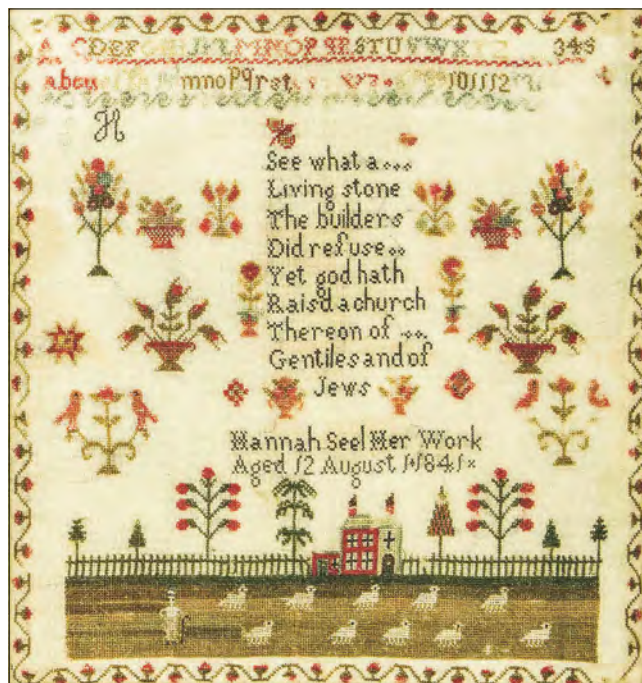 A CDEF JKLMNOPQRSTUVWXYZ 345
abcd mnopqrst
H
See what a...
Living stone
The builders
Did refuse..
Yet god hath
Raisd a church
Thereon of ...
Gentiles and of
Jews
Hannah Seel Her Work
Aged 12 August 1 1841